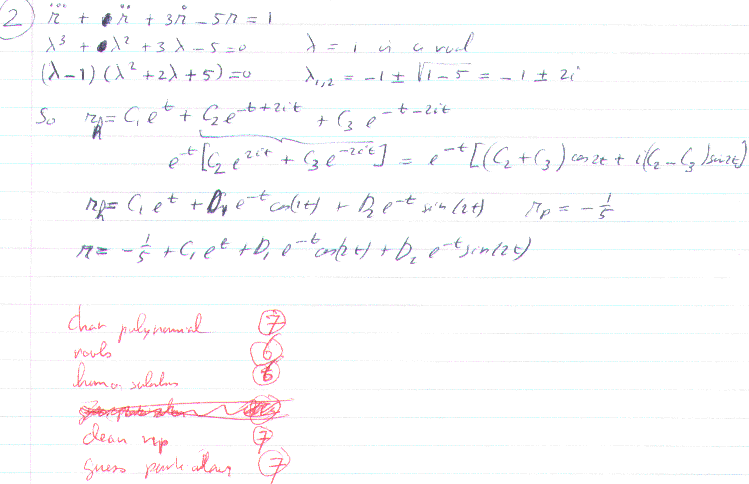 2 r⃛ + r̈ + 3ṙ - 5r = 1
λ³ + λ² + 3λ - 5 = 0 λ = 1 is a root
(λ-1)(λ²+2λ+5) = 0 λ₁,₂ = -1 ± √1-5 = -1 ± 2i
So r_h = C₁e^t + C₂e^(-t+2it) + C₃e^(-t-2it)
e^-t[C₂e^(2it) + C₃e^(-2it)] = e^-t[(C₂+C₃)cos2t + i(C₂-C₃)sin2t]
r_h = C₁e^t + D₁e^-t cos(2t) + D₂e^-t sin(2t) r_p = -1/5
r = -1/5 + C₁e^t + D₁e^-t cos(2t) + D₂e^-t sin(2t)
char polynomial 7
roots 6
homog solution 6
clean up 7
guess part 7